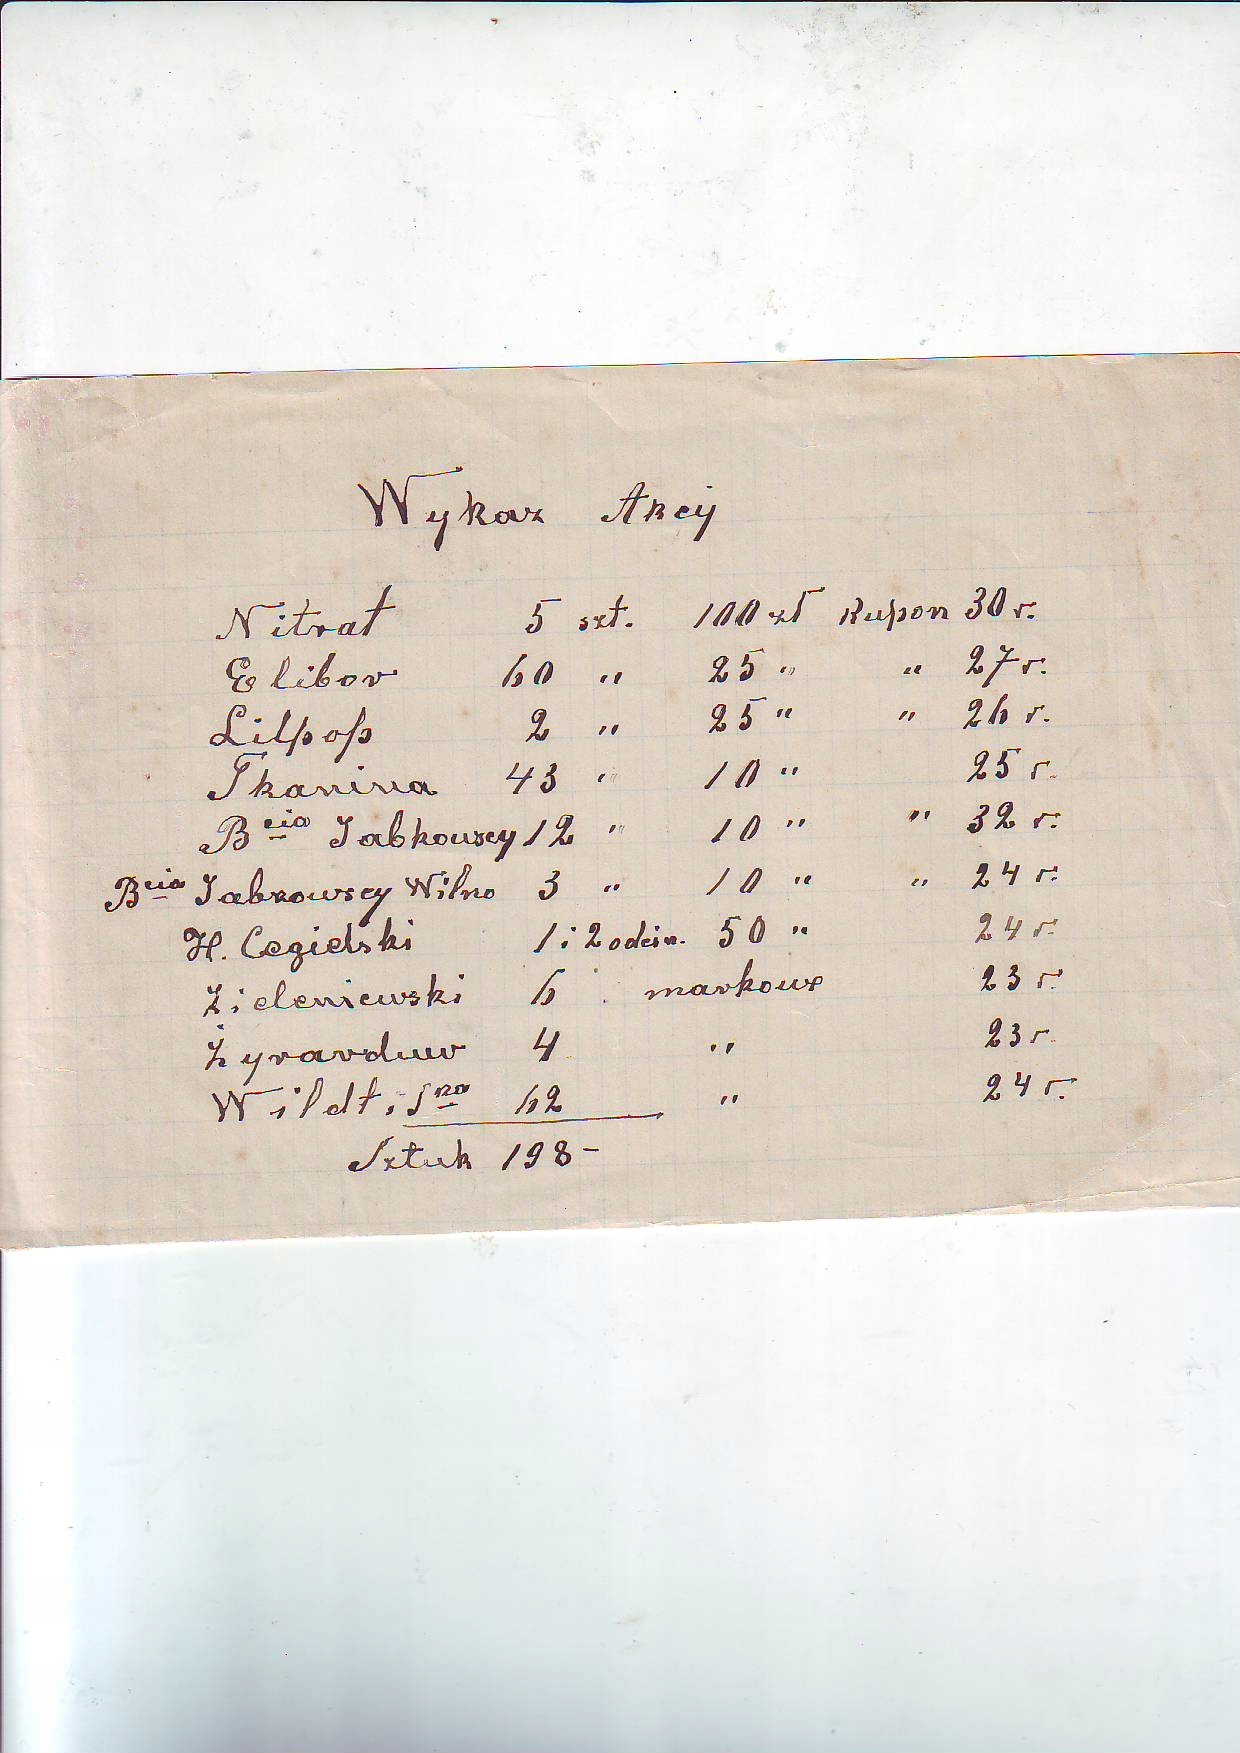 Wykaz Akcij
Nitrat 5 szt. 100 zł Kupon 30 r.
Elibor 60 " 25 " " 27 r.
Lilpop 2 " 25 " " 26 r.
Tkanina 43 " 10 " 25 r.
Bcia Jabkowscy 12 " 10 " " 32 r.
Bcia Jabkowscy Wilno 3 " 10 " " 24 r.
H. Cegielski 1 i 2 odcin. 50 " 24 r.
Zieleniewski 6 markowe 23 r.
Żyrarduw 4 " 23 r.
Wildt i Ska 62 " 24 r.
Sztuk 198 –